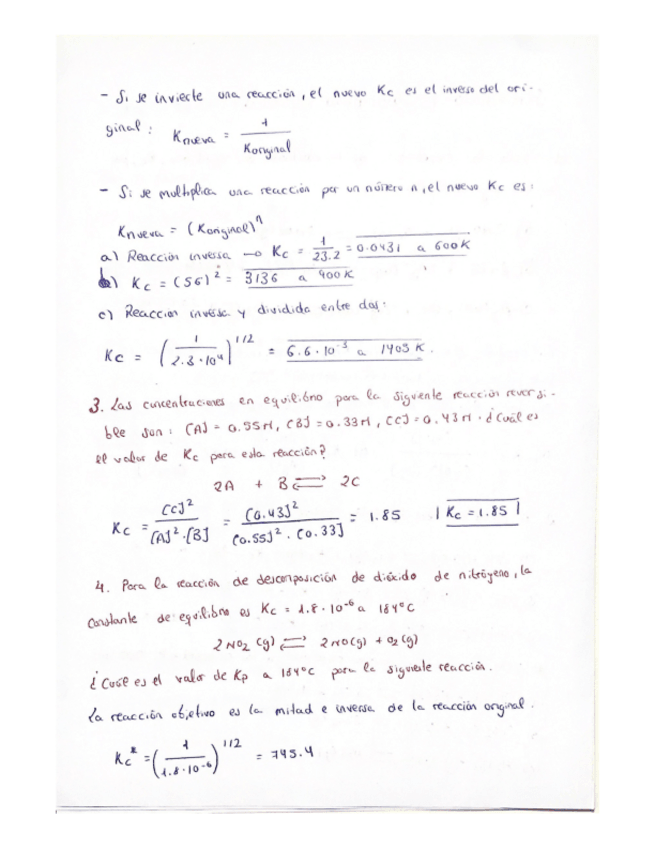 - Si se invierte una reacción, el nuevo Kc es el inverso del ori-
ginal: Knueva = 1 / Koriginal
- Si se multiplica una reacción por un número n, el nuevo Kc es:
Knueva = (Koriginal)^n
a) Reacción inversa → Kc = 1/23.2 = 0.0431 a 600K
b) Kc = (56)^2 = 3136 a 900K
c) Reaccion inversa y dividida entre dos:
Kc = (1 / 2.3·10^4)^1/2 = 6.6·10^-3 a 1405 K.
3. Las concentraciones en equilibrio para la siguiente reacción reversi-
ble son: [A] = 0.55M, [B] = 0.33M, [C] = 0.43M. ¿Cuál es
el valor de Kc para esta reacción?
2A + B ⇌ 2C
Kc = [C]^2 / [A]^2·[B] = [0.43]^2 / [0.55]^2 · [0.33] = 1.85 | Kc = 1.85 |
4. Para la reacción de descomposición de dióxido de nitrógeno, la
constante de equilibrio es Kc = 1.8·10^-6 a 184°C
2NO2 (g) ⇌ 2NO(g) + O2(g)
¿Cuál es el valor de Kp a 184°C para la siguiente reacción.
La reacción objetivo es la mitad e inversa de la reacción original.
Kc* = (1 / 1.8·10^-6)^1/2 = 745.4